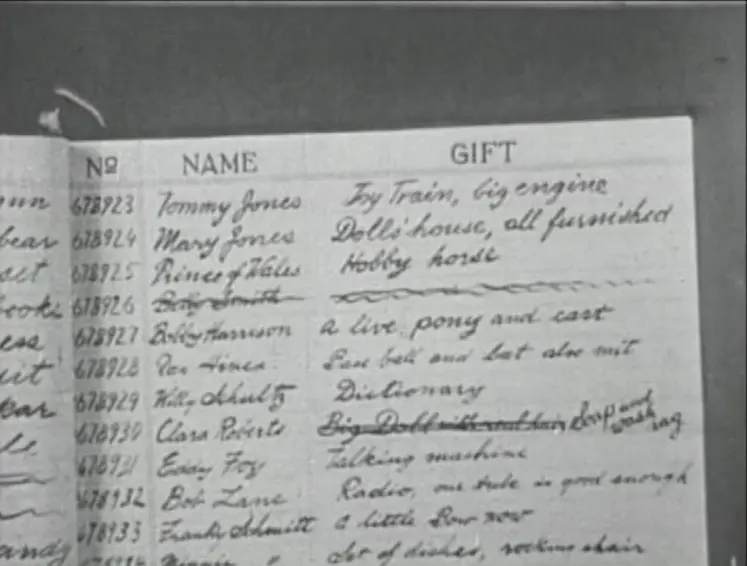 No NAME GIFT
gun 678923 Tommy Jones Toy Train, big engine
bear 678924 Mary Jones Dolls' house, all furnished
set 678925 Prince of Wales Hobby horse
books 678926 Betty Smith
ess 678927 Bobby Harrison a live pony and cart
uit 678928 Hines Base ball and bat also mit
678929 Willy Schultz Dictionary
678930 Clara Roberts Big Doll with real hair Soap and wash rag
678931 Eddy Foy Talking machine
678932 Bob Lane Radio, one tube is good enough
678933 Franky Schmitt a little Bow wow
andy Minnie " Set of dishes, rocking chair